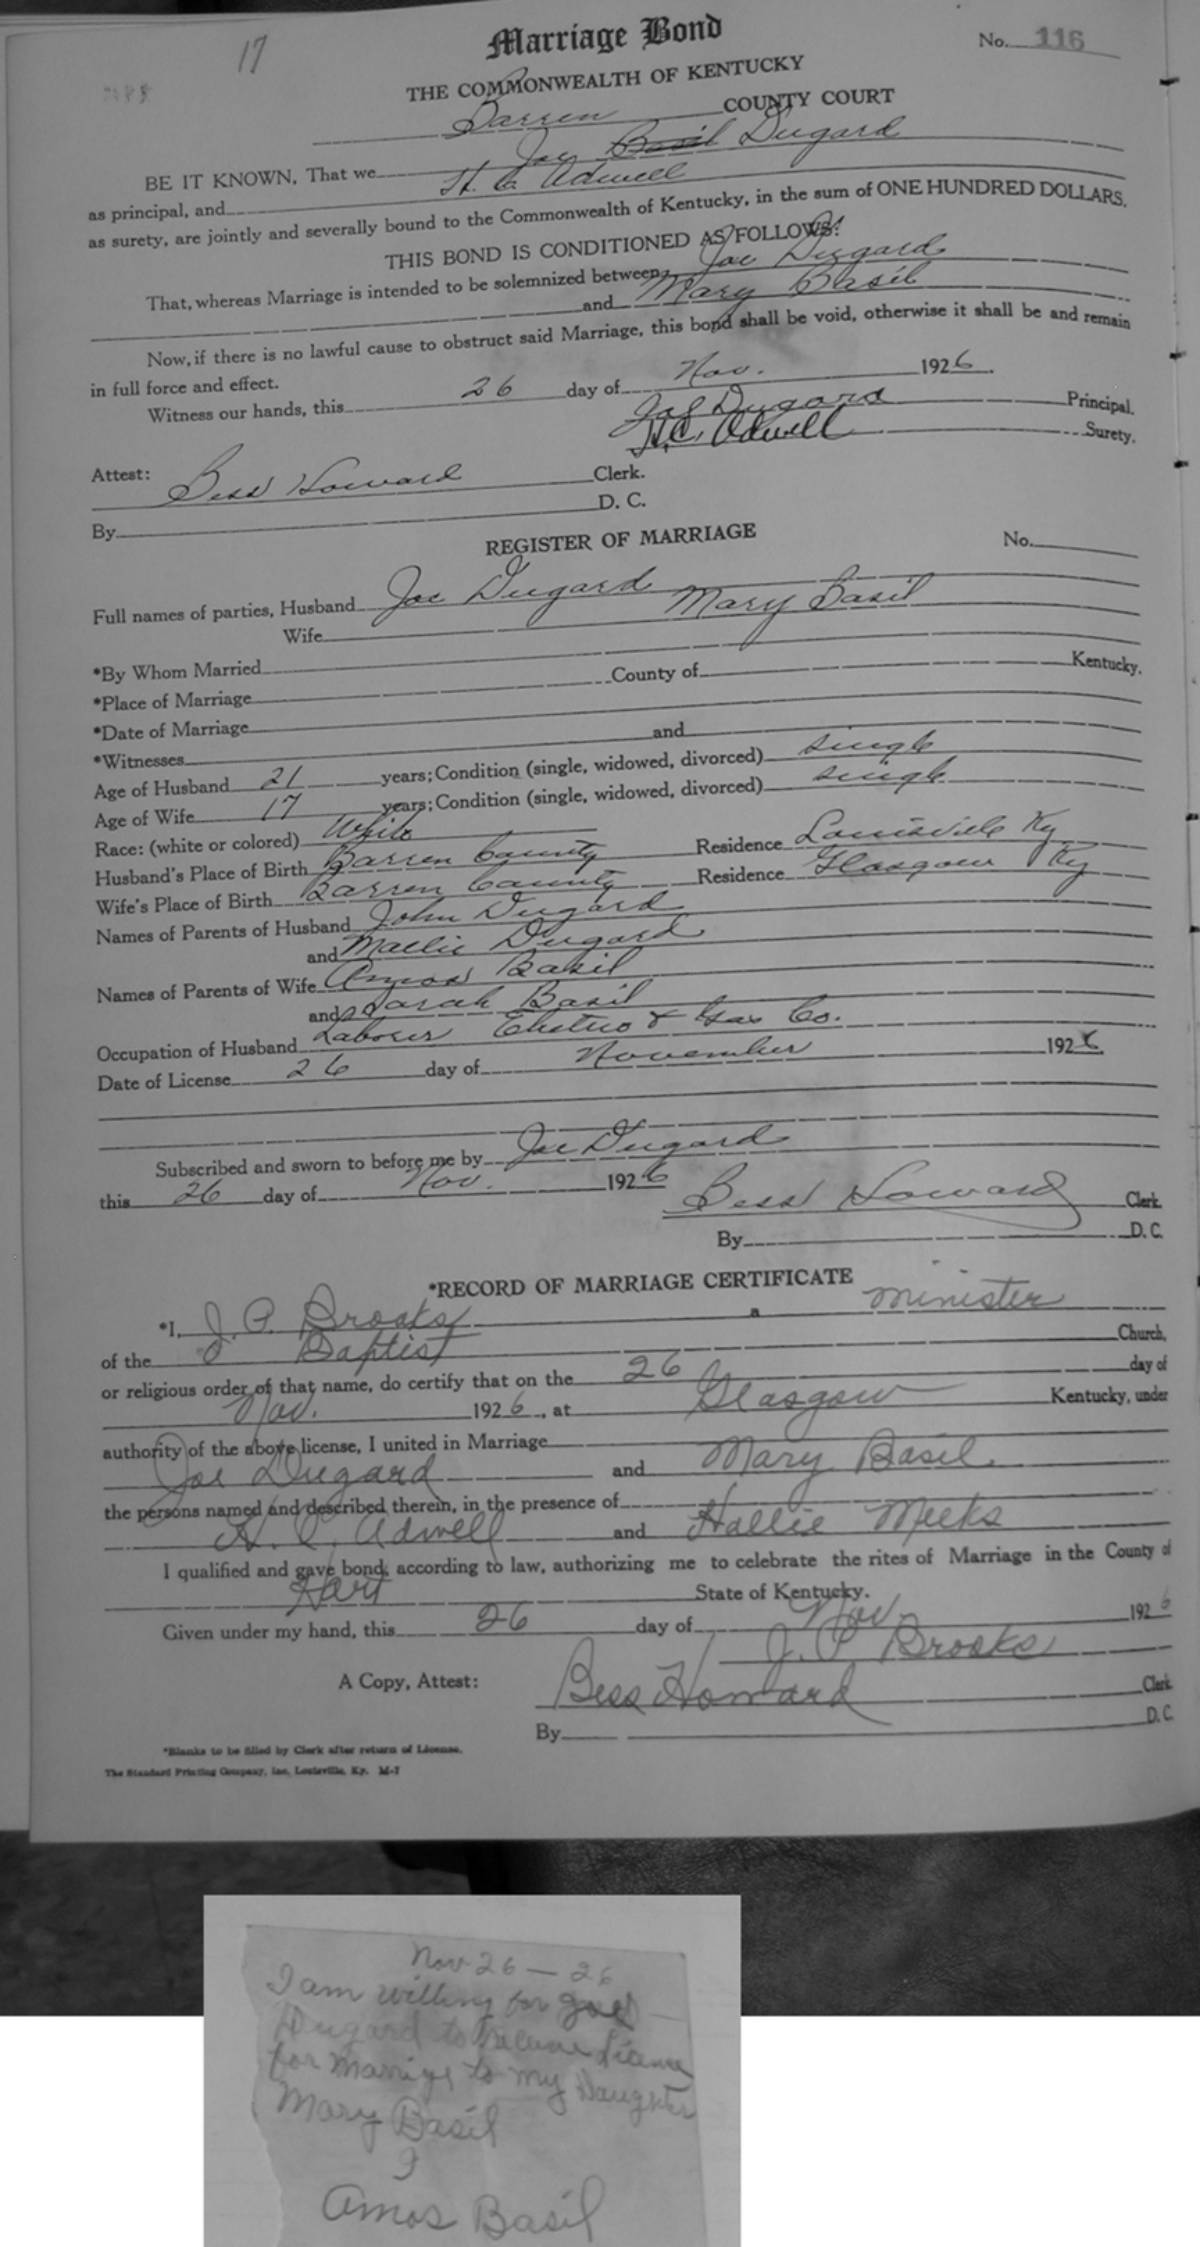 17
Marriage Bond
No. 116
THE COMMONWEALTH OF KENTUCKY
Barren COUNTY COURT
BE IT KNOWN, That we Joe Basil Dugard
as principal, and H. C. Adwell
as surety, are jointly and severally bound to the Commonwealth of Kentucky, in the sum of ONE HUNDRED DOLLARS.
THIS BOND IS CONDITIONED AS FOLLOWS:
That, whereas Marriage is intended to be solemnized between Joe Dugard
and Mary Basil
Now, if there is no lawful cause to obstruct said Marriage, this bond shall be void, otherwise it shall be and remain
in full force and effect.
Witness our hands, this 26 day of Nov. 1926.
Joe Dugard Principal.
H.C. Adwell Surety.
Attest: Bess Howard Clerk.
By D. C.
REGISTER OF MARRIAGE
No.
Full names of parties, Husband Joe Dugard
Wife Mary Basil
*By Whom Married
*Place of Marriage County of Kentucky.
*Date of Marriage
*Witnesses and
Age of Husband 21 years; Condition (single, widowed, divorced) single
Age of Wife 17 years; Condition (single, widowed, divorced) single
Race: (white or colored) White
Husband's Place of Birth Barren County Residence Louisville Ky
Wife's Place of Birth Barren County Residence Glasgow Ky
Names of Parents of Husband John Dugard
and Mallie Dugard
Names of Parents of Wife Amos Basil
and Sarah Basil
Occupation of Husband Laborer Electric & Gas Co.
Date of License 26 day of November 1926
Subscribed and sworn to before me by Joe Dugard
this 26 day of Nov. 1926
Bess Howard Clerk.
By D. C.
*RECORD OF MARRIAGE CERTIFICATE
*I, J. P. Brooks a minister
of the Baptist Church,
or religious order of that name, do certify that on the 26 day of
Nov. 1926, at Glasgow Kentucky, under
authority of the above license, I united in Marriage
Joe Dugard and Mary Basil
the persons named and described therein, in the presence of
H. C. Adwell and Hallie Meeks
I qualified and gave bond, according to law, authorizing me to celebrate the rites of Marriage in the County of
Hart State of Kentucky.
Given under my hand, this 26 day of Nov. 1926
J. P. Brooks
A Copy, Attest: Bess Howard Clerk
By D. C.
*Blanks to be filed by Clerk after return of License.
The Standard Printing Company, Inc. Louisville, Ky. M-7
Nov 26 — 26
I am willing for Joe
Dugard to
for Marrige to my Daughter
Mary Basil
Amos Basil